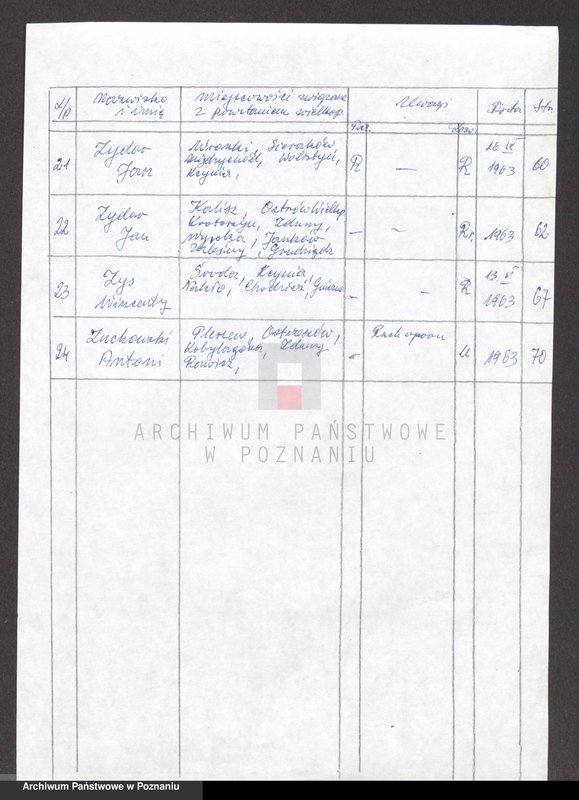 L/p Nazwisko i imię Miejscowości związane z powstaniem wielkop. Uwagi Data Str.
Fot.
21 Zydor Jan
Wronki, Sieraków,
Międzychód, Wolsztyn,
Kcynia,
R — R 16 IX 1963 60
22 Zydor Jan
Kalisz, Ostrów Wielkp
Krotoszyn, Zduny,
Jankow
Zalesiny, Grudziądz
— — R. 1963 62
23 Zys Wincenty
Środa, Kcynia,
Nakło, Chodzież, Gniezno
— — R 13. VI 1963 67
24 Żuchowski Antoni
Pleszew, Ostrzeszów,
Kobylagóra, Zduny
Rawicz,
1963 70
ARCHIWUM PAŃSTWOWE
W POZNANIU
Archiwum Państwowe w Poznaniu